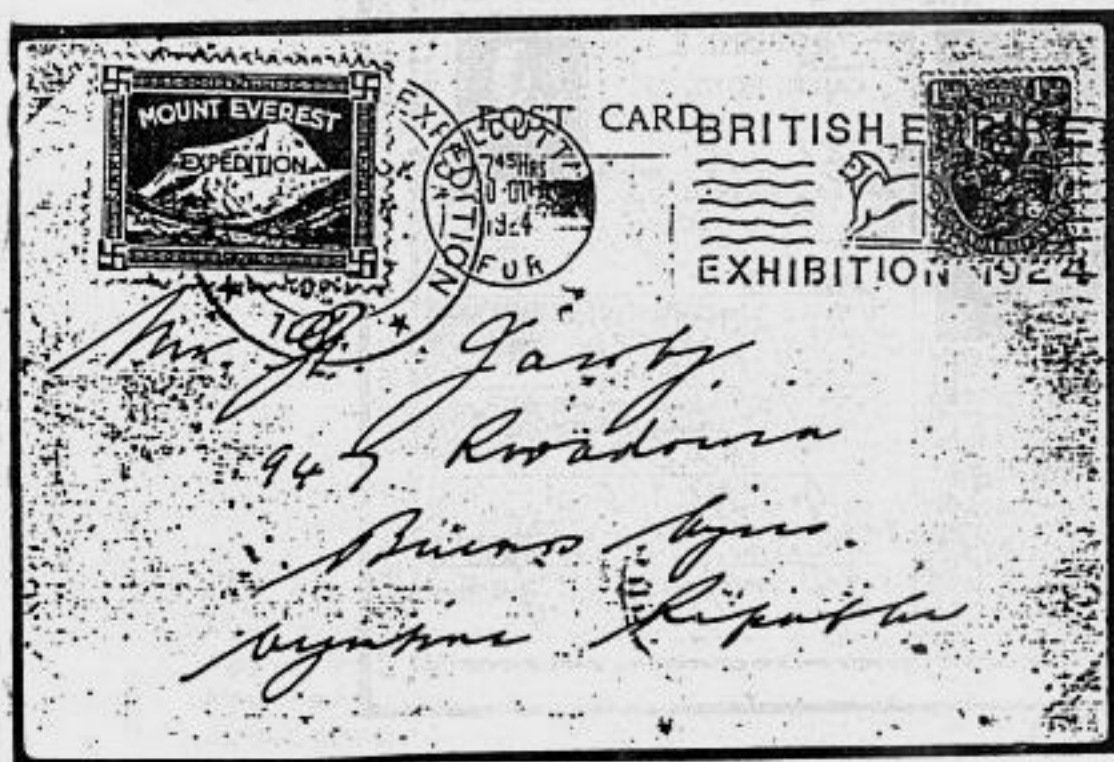 MOUNT EVEREST
EXPEDITION
EXPEDITION
POST CARD
CALCUTTA
7 45 HRS
1924
BRITISH EMPIRE
EXHIBITION 1924
Mr. Jacoby
949 Rivadavia
Buenos Ayres.
Argentine Republic